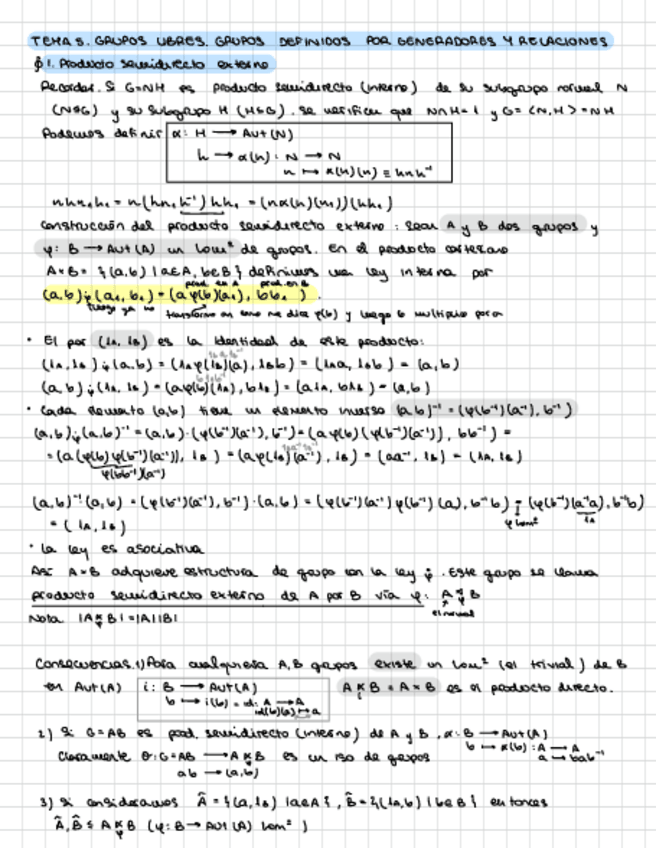 TEMA 5. GRUPOS LIBRES. GRUPOS DEFINIDOS POR GENERADORES Y RELACIONES
§1. Producto semidirecto externo
Recordar. Si G=NH es producto semidirecto (interno) de su subgrupo normal N
(N⊴G) y su subgrupo H (H≤G). Se verifica que N∩H=1 y G=<N,H>=NH
Podemos definir α: H → Aut(N)
h → α(h): N → N
n ↦ α(h)(n) ≡ hnh⁻¹
nhn₁h₁ = n(hn₁h⁻¹)hh₁ = (nα(h)(n₁))(hh₁)
Construcción del producto semidirecto externo: Sean A y B dos grupos y
φ: B → Aut(A) un homº de grupos. En el producto cartesiano
A×B = {(a,b) | a∈A, b∈B} definimos una ley interna por
prod. en A prod. en B
(a,b)·φ(a₁,b₁) = (aφ(b)(a₁), bb₁).
transformo en como me dice φ(b) y luego lo multiplico por a
· El par (1A, 1B) es la identidad de este producto:
(1A,1B)·φ(a,b) = (1Aφ(1B)(a), 1Bb) = (1Aa, 1Bb) = (a,b)
(a,b)·φ(1A,1B) = (aφ(b)(1A), b1B) = (a1A, b1B) = (a,b)
· Cada elemento (a,b) tiene un elemento inverso (a,b)⁻¹ = (φ(b⁻¹)(a⁻¹), b⁻¹)
(a,b)·φ(a,b)⁻¹ = (a,b)·(φ(b⁻¹)(a⁻¹), b⁻¹) = (aφ(b)(φ(b⁻¹)(a⁻¹)), bb⁻¹) =
= (a(φ(b)φ(b⁻¹)(a⁻¹)), 1B) = (aφ(1B)(a⁻¹), 1B) = (aa⁻¹, 1B) = (1A, 1B)
φ(bb⁻¹)(a⁻¹)
(a,b)⁻¹(a,b) = (φ(b⁻¹)(a⁻¹), b⁻¹)·(a,b) = (φ(b⁻¹)(a⁻¹)φ(b⁻¹)(a), b⁻¹b) = (φ(b⁻¹)(a⁻¹a), b⁻¹b)
φ homº 1A
= (1A, 1B)
· La ley es asociativa
Así A×B adquiere estructura de grupo con la ley ·φ. Este grupo se llama
producto semidirecto externo de A por B vía φ: A⋊φB
el normal
Nota |A⋊φB| = |A||B|
Consecuencias. 1) Para cualquiera A, B grupos existe un homº (el trivial) de B
en Aut(A) i: B → Aut(A) A⋊iB = A×B es el producto directo.
b ↦ i(b) = id: A → A
id(b)(a) ↦ a
2) Si G=AB es prod. semidirecto (interno) de A y B, α: B → Aut(A)
b ↦ α(b): A → A
a → bab⁻¹
Claramente θ: G=AB → A⋊αB es un iso de grupos
ab → (a,b)
3) Si consideramos Â = {(a,1B) | a∈A}, B̂ = {(1A,b) | b∈B} entonces
Â, B̂ ≤ A⋊φB (φ: B → Aut(A) homº)